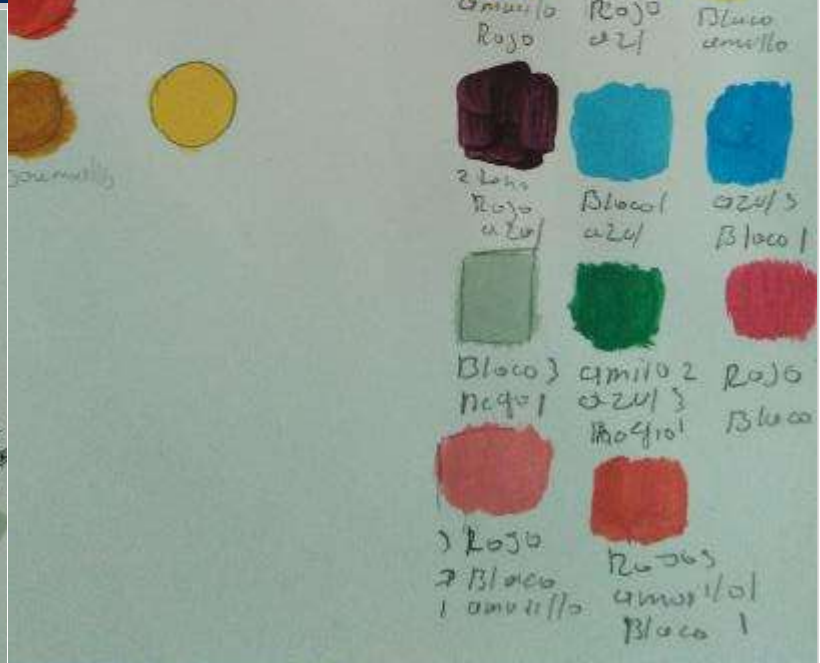 amarilo
Rojo
Rojo
azul
Blaco
amarillo
Rojo
azul
Blaco1
azul
azul 3
Blaco 1
Blaco 3
negro 1
amrilo 2
azul 3
Rojo
Blaco
3 Rojo
2 Blaco
1 amarillo
Rojo 3
amarilo 1
Blaco 1